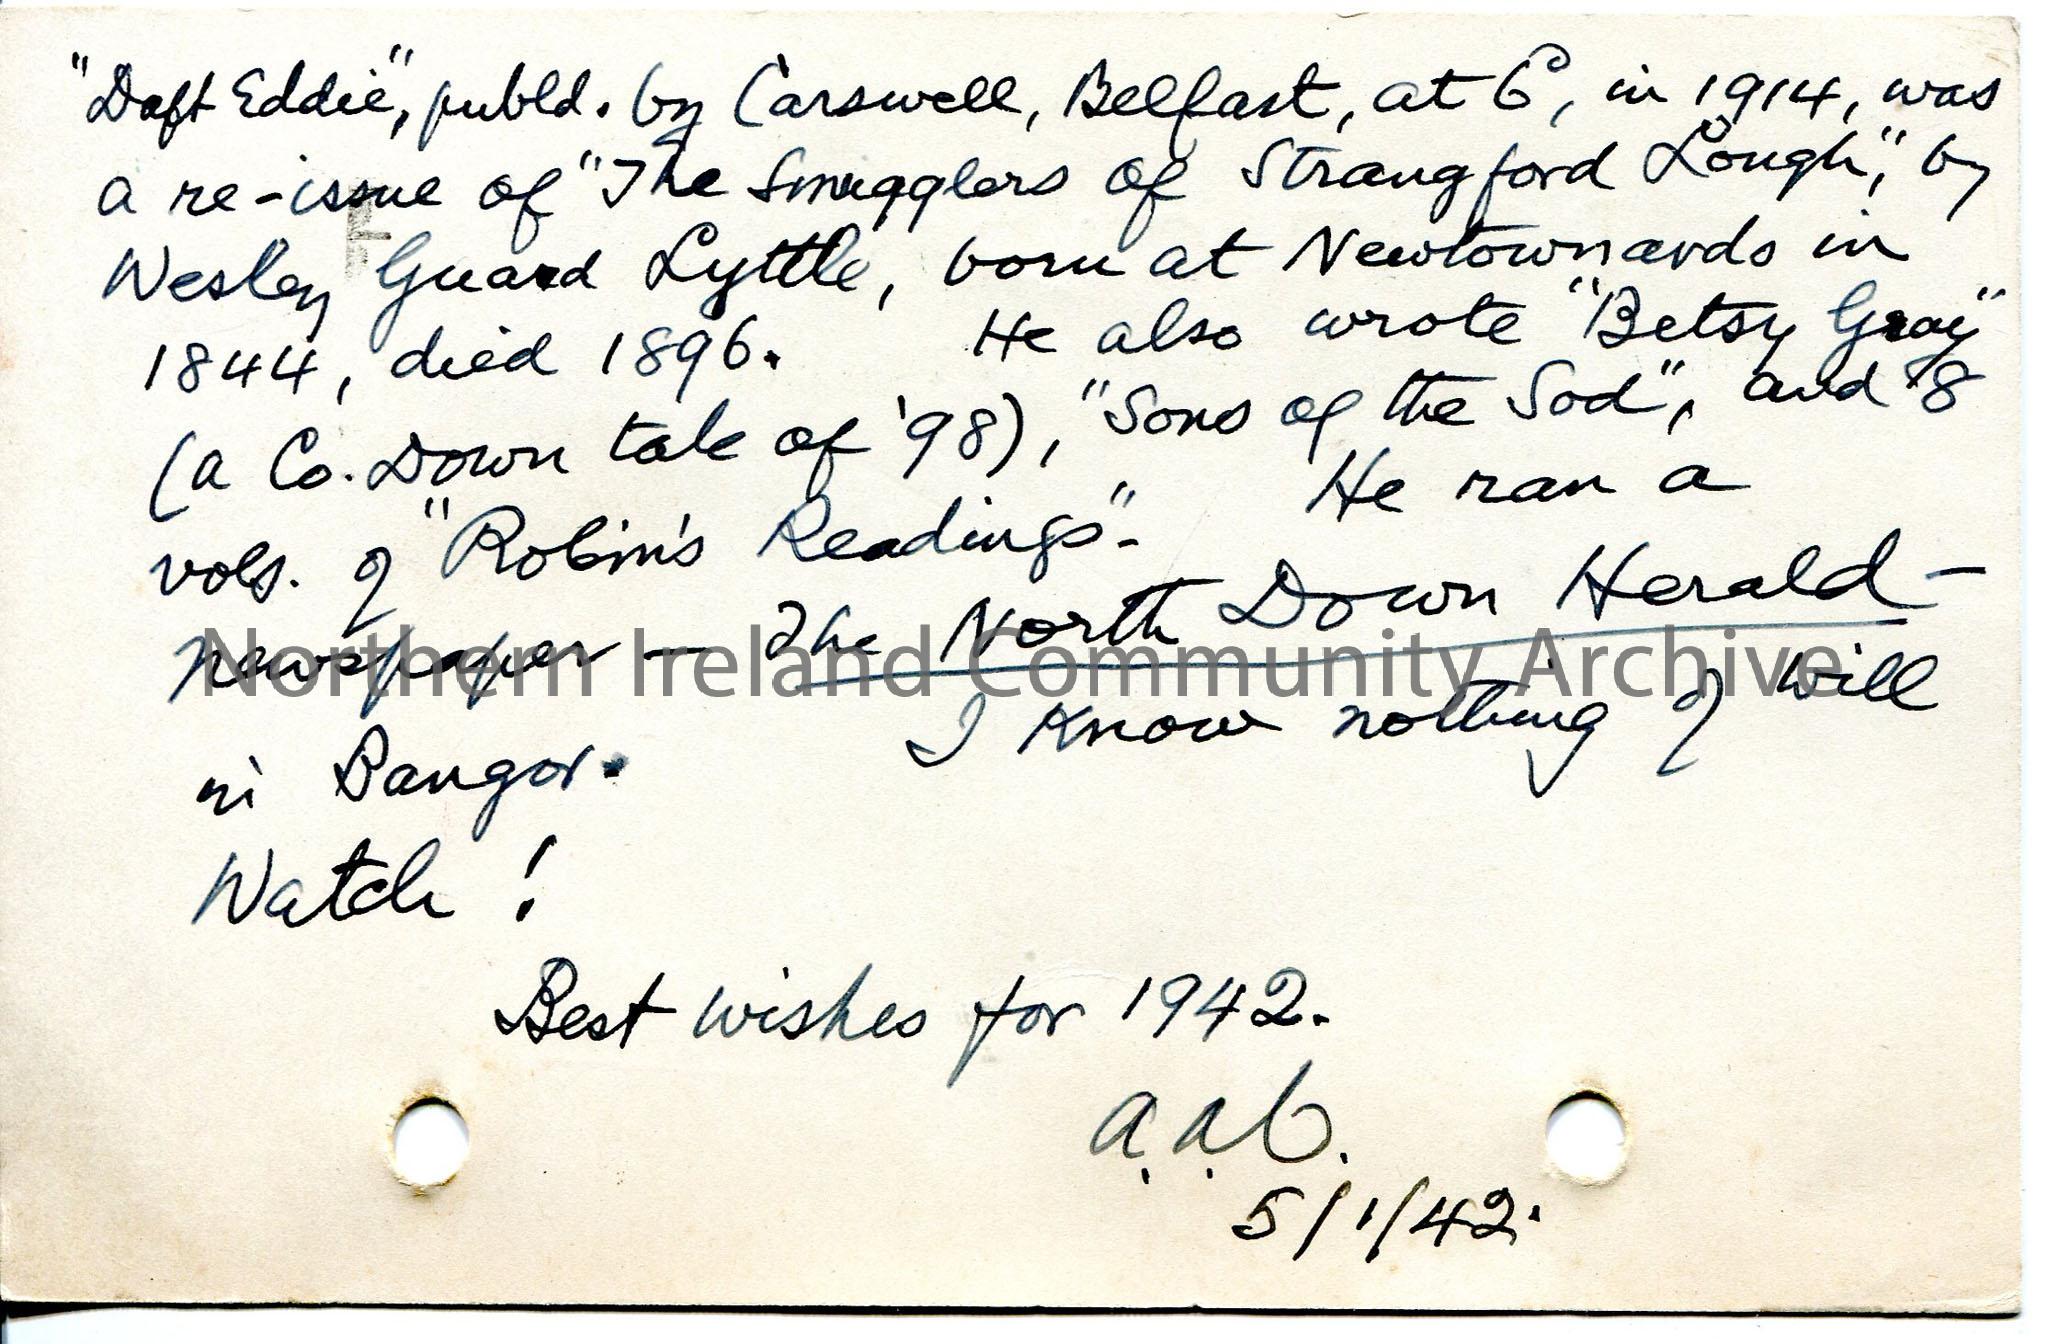 "Daft Eddie", publd. by Carswell, Belfast, at 6ᵈ, in 1914, was
a re-issue of "The Smugglers of Strangford Lough", by
Wesley Guard Lyttle, born at Newtownards in
1844, died 1896. He also wrote "Betsy Gray"
(a Co. Down tale of '98), "Sons of the Sod", and 8
vols. of "Robin's Readings". He ran a
newspaper — The North Down Herald —
in Bangor. I know nothing of Will
Watch!
Best wishes for 1942.
5/1/42.
Northern Ireland Community Archive
F